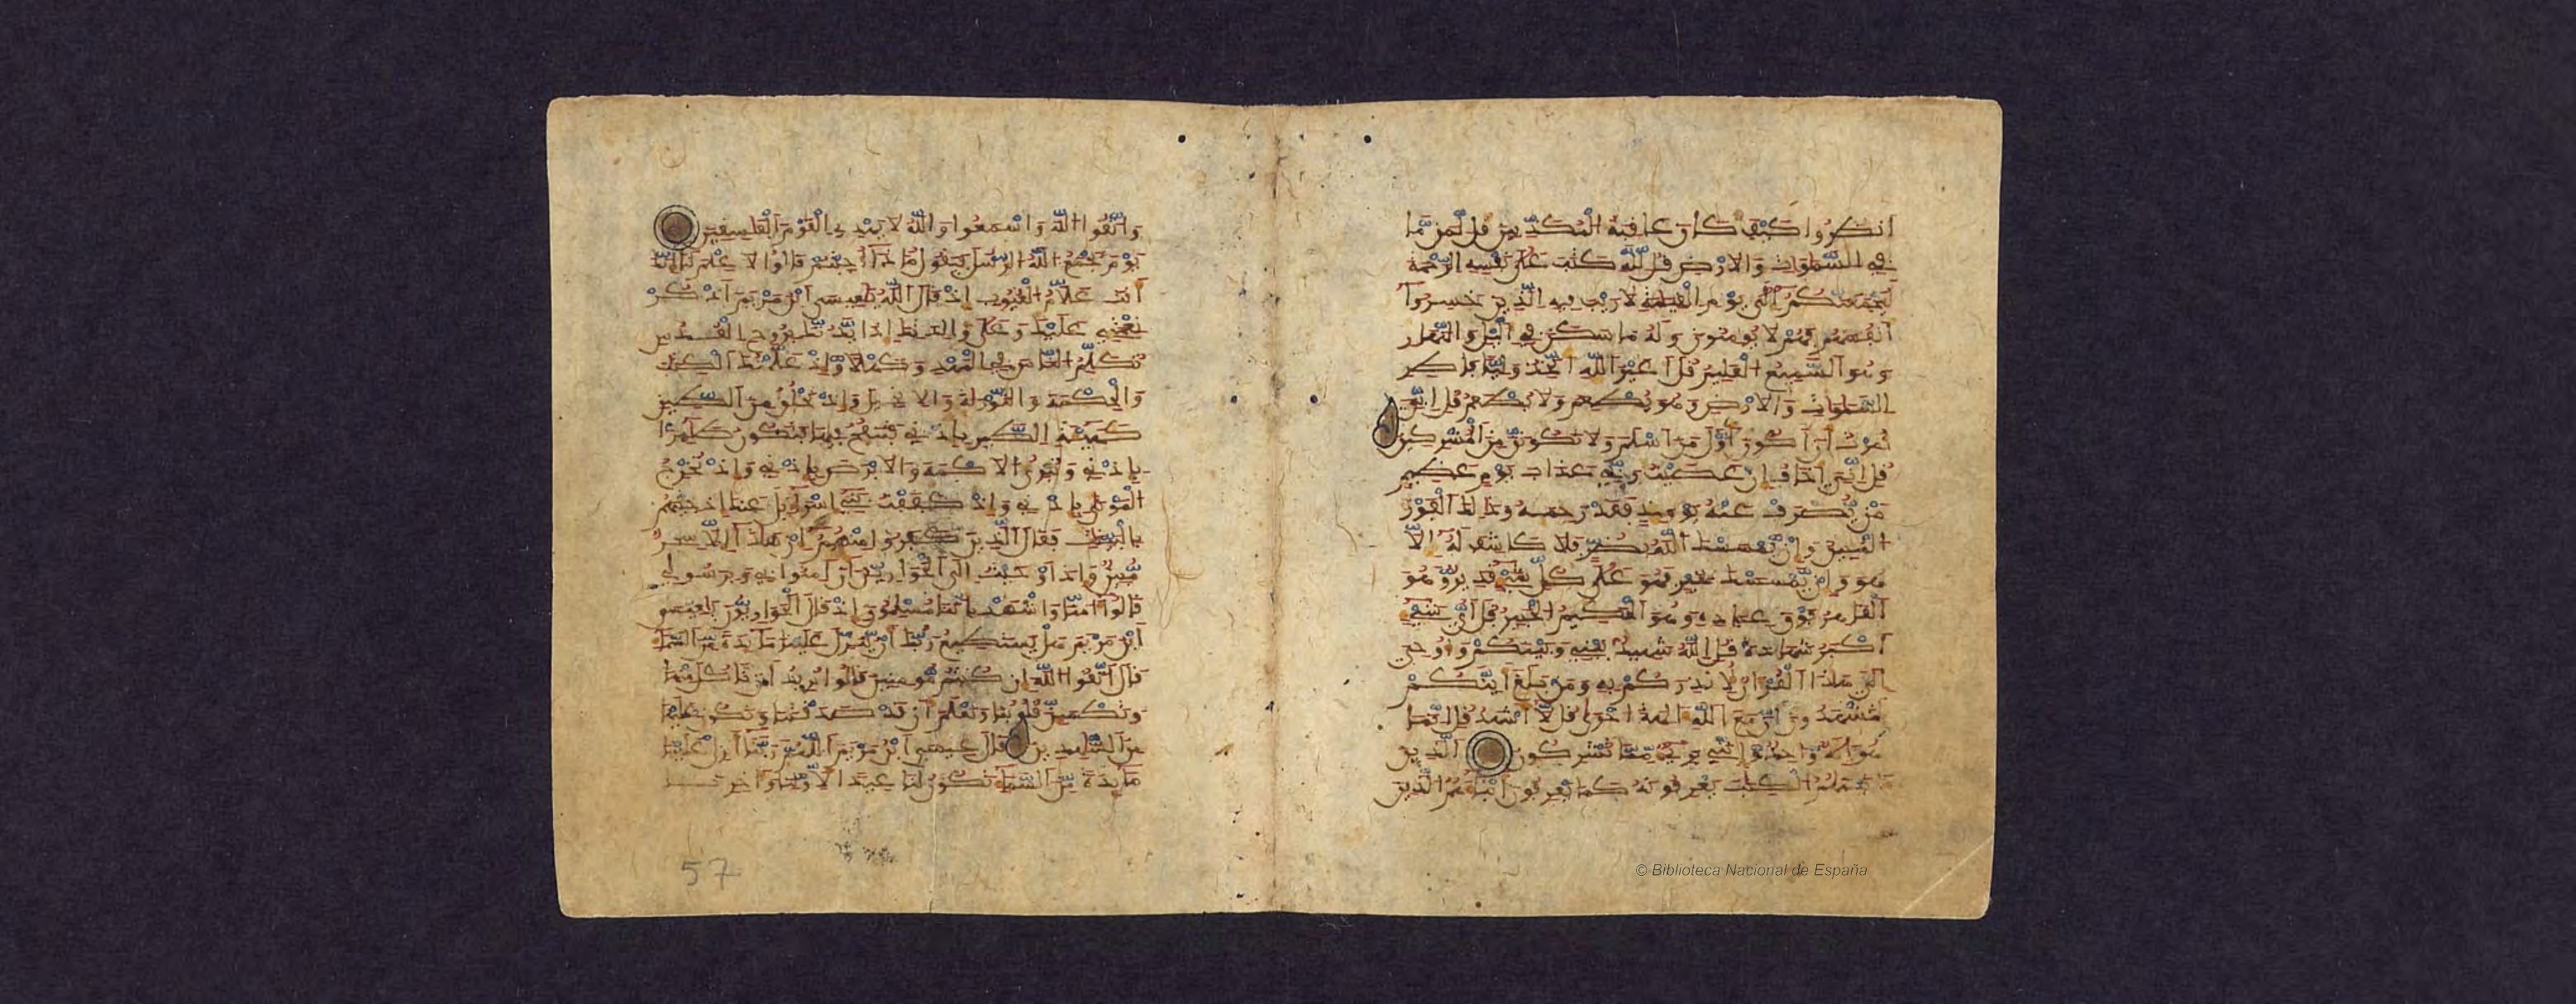 انظروا كيف كان عاقبة المكذبين قل لمن ما
في السموات والارض قل لله كتب على نفسه الرحمة
ليجمعنكم الى يوم القيمة لا ريب فيه الذين خسروا
انفسهم فهم لا يومنون وله ما سكن في اليل والنهار
وهو السميع العليم قل اغير الله اتخذ وليا فاطر
السموات والارض وهو يطعم ولا يطعم قل اني
امرت ان اكون اول من اسلم ولا تكونن من المشركين
قل اني اخاف ان عصيت ربي عذاب يوم عظيم
من يصرف عنه يومئذ فقد رحمه وذلك الفوز
المبين وان يمسسك الله بضر فلا كاشف له الا
هو وان يمسسك بخير فهو على كل شيء قدير وهو
القاهر فوق عباده وهو الحكيم الخبير قل اي شيء
اكبر شهادة قل الله شهيد بيني وبينكم واوحي
الي هذا القران لانذركم به ومن بلغ اينكم
لتشهدون ان مع الله الهة اخرى قل لا اشهد قل انما
هو اله واحد وانني بريء مما تشركون الذين
اتينهم الكتب يعرفونه كما يعرفون ابناءهم الذين
© Biblioteca Nacional de España
واتقوا الله واسمعوا والله لا يهدي القوم الفسقين
يوم يجمع الله الرسل فيقول ماذا اجبتم قالوا لا علم لنا انك
انت علام الغيوب اذ قال الله يعيسى ابن مريم اذكر
نعمتي عليك وعلى والدتك اذ ايدتك بروح القدس
تكلم الناس في المهد وكهلا واذ علمتك الكتب
والحكمة والتورية والانجيل واذ تخلق من الطين
كهيئة الطير باذني فتنفخ فيها فتكون طيرا
باذني وتبرئ الاكمه والابرص باذني واذ تخرج
الموتى باذني واذ كففت بني اسرائيل عنك اذ جئتهم
بالبينت فقال الذين كفروا منهم ان هذا الا سحر
مبين واذ اوحيت الى الحوارين ان امنوا بي وبرسولي
قالوا امنا واشهد باننا مسلمون اذ قال الحواريون يعيسى
ابن مريم هل يستطيع ربك ان ينزل علينا مايدة من السماء
قال اتقوا الله ان كنتم مومنين قالوا نريد ان ناكل منها
وتطمئن قلوبنا ونعلم ان قد صدقتنا ونكون عليها
من الشهدين قال عيسى ابن مريم اللهم ربنا انزل علينا
مايدة من السماء تكون لنا عيدا لاولنا واخرنا
57